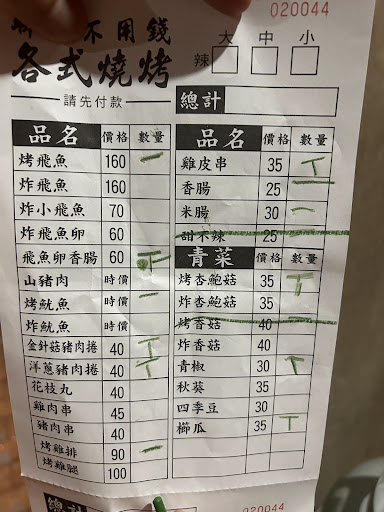 020044
不用錢
各式燒烤
請先付款
大 中 小
辣
總計
品名 價格 數量
烤飛魚 160
炸飛魚 160
炸小飛魚 70
炸飛魚卵 60
飛魚卵香腸 60
山豬肉 時價
烤魷魚 時價
炸魷魚 時價
金針菇豬肉捲 40
洋蔥豬肉捲 40
花枝丸 40
雞肉串 45
豬肉串 40
烤雞排 90
烤雞腿 100
品名 價格 數量
雞皮串 35
香腸 25
米腸 30
甜不辣 25
青菜 價格 數量
烤杏鮑菇 35
炸杏鮑菇 35
烤香菇 40
炸香菇 40
青椒 30
秋葵 35
四季豆 30
櫛瓜 35
總計
020044